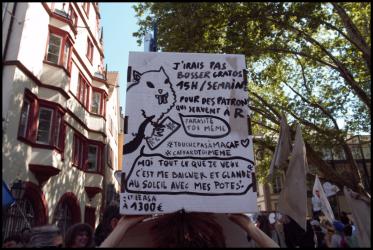 J'IRAIS PAS
BOSSER GRATOS
15H/SEMAINE
POUR DES PATRONS
QUI SERVENT À R.
PARASITE
TOI MÊME
#TOUCHEPASÀMACAF
#CAFARDTOIMEME
MOI TOUT CE QUE JE VEUX
C'EST ME BAIGNER ET GLANDER
AU SOLEIL AVEC MES POTES!
À 1300€